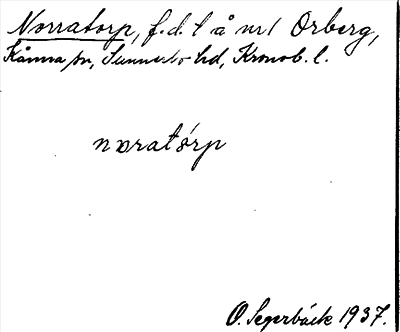 Norratorp, f.d. t å nr 1 Orberg,
Kånna sn, Sunnerbo hd, Kronob. l.
noratórp
O. Segerbäck 1937.